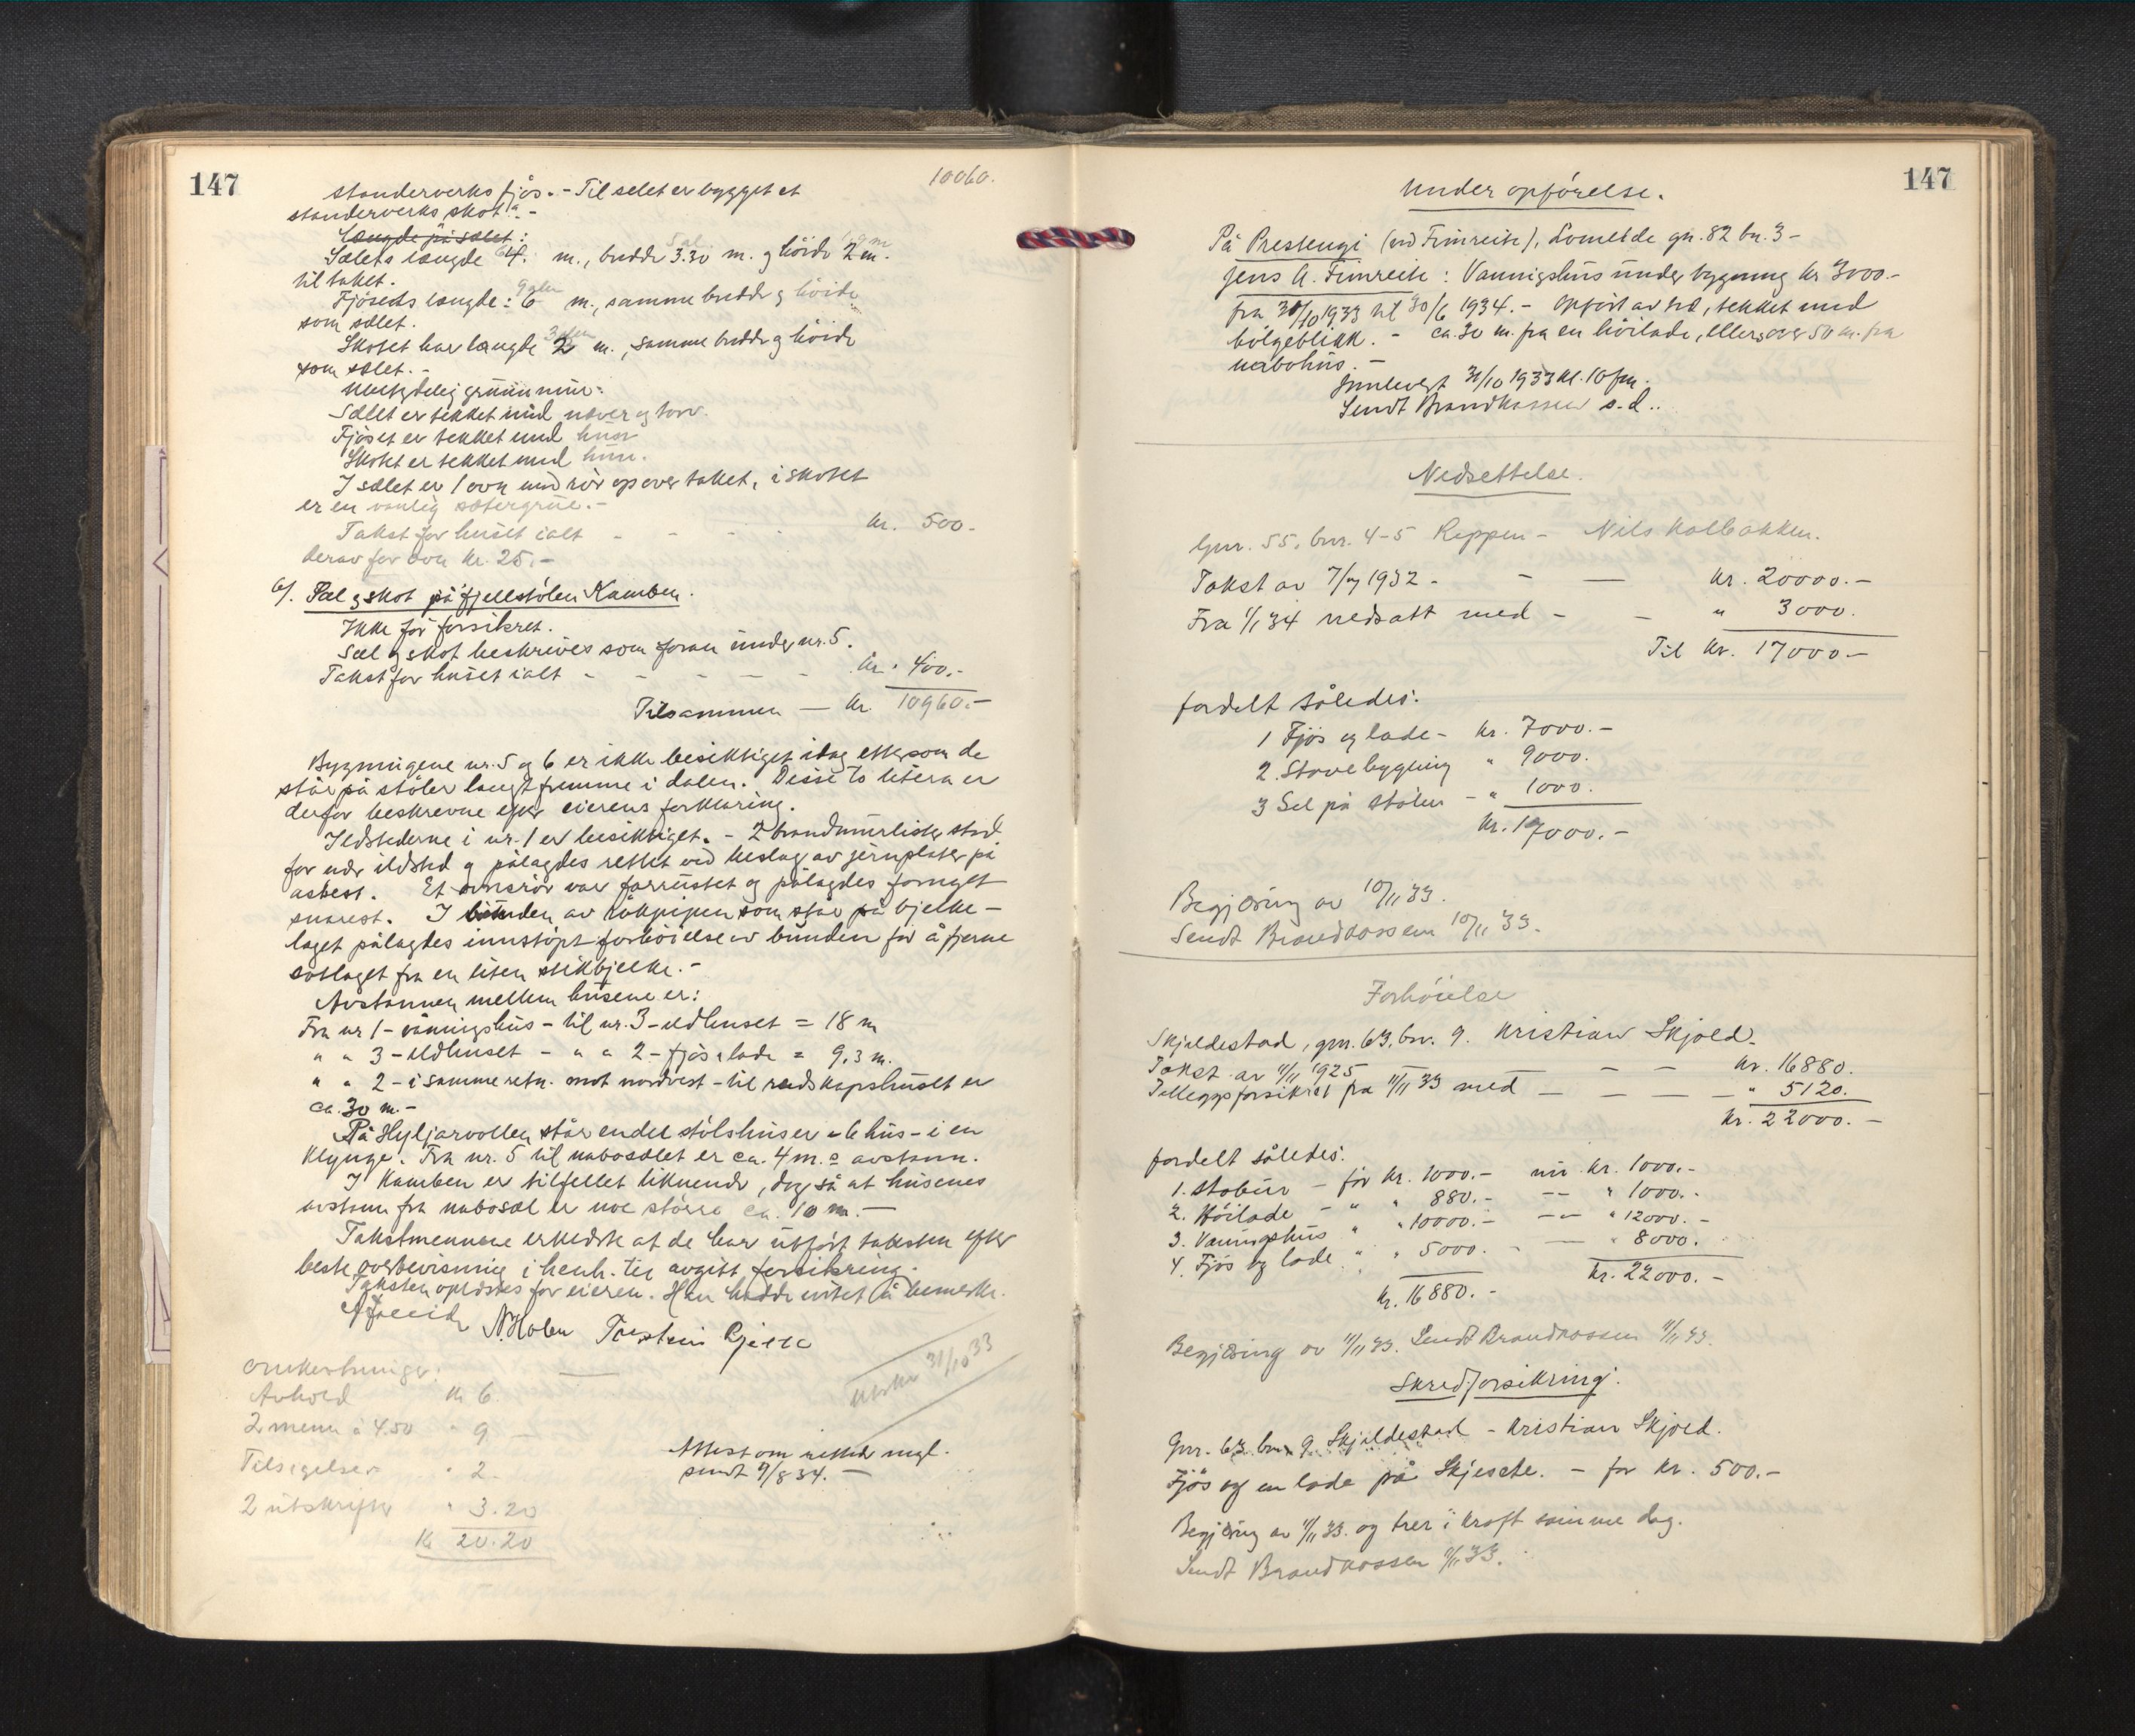 147
10060.
standerverks fjös. - Til selet er bygget et
standerverks skot. -
Længde på sælet:
Sælets længde 4. m., bredde 3.30 m. og höide 2 m.
til taket.
Fjösets længde: 6 m., samme bredde og höide
som sælet.
Skotet har længde 2 m., samme bredde og höide
som sælet. -
Ubetydelig grunnmur.
Sælet er tekket med næver og torv.
Fjöset er tekket med
Skotet er tekket med
I sælet er 1 ovn med rör op over taket, i skotet
er en vanlig sætergrue. -
Takst for huset ialt - - - - kr. 500.-
derav for ovn kr. 25. -
6/. Sæl og skot på fjellstölen Kamben.
Ikke för forsikret.
Sæl og skot beskrives som foran under nr. 5.
Takst for huset ialt - - - - - kr. 400.-
Tilsammen — kr. 10960.-
Bygningene nr. 5 og 6 er ikke besiktiget idag ettersom de
står på stöler langt fremme i dalen. Disse to litera er
derfor beskrevne efter eierens forklaring.
Ildstederne i nr. 1 er besiktiget. - 2 brandmurlister stod
for nær ildsted og pålagdes rettet ved beslag av jernplater på
asbest. Et ovnsrör var forrustet og pålagdes fornyet
snarest. I bunden av rökpipen som står på bjelke-
laget pålagdes innstöpt forhöielse av bunden for å fjerne
sotlaget fra en liten stikbjelke. -
Avstannen mellem husene er:
Fra nr 1 - våningshus - til nr. 3 - eldhuset = 18 m
" " 3 - eldhuset - " " 2 - fjös & lade = 9,3 m.
" " 2 - i samme retn. mot nordvest - til redskapshuset er
ca. 30 m. -
På Hyljarvollen står endel stölshuser - 6 hus - i en
klynge. Fra nr. 5 til nabosælet er ca. 4 m.s avstann.
I Kamben er tilfellet liknende, dog så at husenes
avstann fra nabosæl er noe större ca. 10 m. —
Takstmennene erklærte at de har utfört taksten efter
beste overbevisning i henh. til avgitt forsikring.
Taksten oplæstes for eieren. Han hadde intet å bemerke.
N. Holen Torstein Gjerde
Omkostninger:
Avhold kr 6.
2 menn à 4.50 " 9 —
Tilsigelser " 2.
2 utskrifter " 3.20
Kr 20.20
31/10 33
Attest om rettede mgl.
sendt 9/8 34. —
147
Under opförelse.
På Prestengi (ved Fimreite), Lomelde gn. 82 bn. 3 -
Jens A. Fimreite: Vaanigshus under bygning kr 3000.-
fra 31/10 1933 til 30/6 1934. - Opfört av tre, tekket med
bölgeblikk. - ca. 30 m. fra en höilade, ellers over 50 m. fra
nabohus. -
Innlevert 31/10 1933 kl. 10 fm.
Sendt Brandkassen s. d..
Nedsettelse.
Gnr. 55, bnr. 4-5 Reppen - Nils Kalbakken.
Takst av 7/7 1932 - - — kr. 20000.-
Fra 1/1 34 nedsatt med - - " 3000.
Til kr. 17000.-
fordelt således:
1 Fjös og lade - kr. 7000.-
2. Stovebygning " 9000.
3 Sel på stölen - " 1000.
kr. 17000.-
Begjæring av 10/11 33.
Sendt Brandkassen 10/11 33.
Forhöielse
Skjeldestad, gnr. 63, bnr. 9. Kristian Skjeld.
Takst av 11/11 1925 — - - kr. 16880.
Tilleggsforsikret fra 11/11 33 med — - - — " 5120.
Kr. 22000. -
fordelt således:
1. Stabur - för kr. 1000.- nu kr. 1000.-
2. Höilade - " " 880.- -- " 1000.-
3. Vaaningshus " " 10000.- -- " 12000.-
4. Fjös og lade " " 5000. - — " 8000.
Kr. 16880.- Kr. 22000.-
Begjæring av 11/11 33. Sendt Brandkassen 11/11 33.
Skredforsikring.
Gnr. 63 bnr 9 Skjeldestad - Kristian Skjeld.
Fjös og en lade på - for kr. 500.-
Begjæring av 11/11 33. og trer i kraft samme dag.
Sendt Brandkassen 11/11 33.